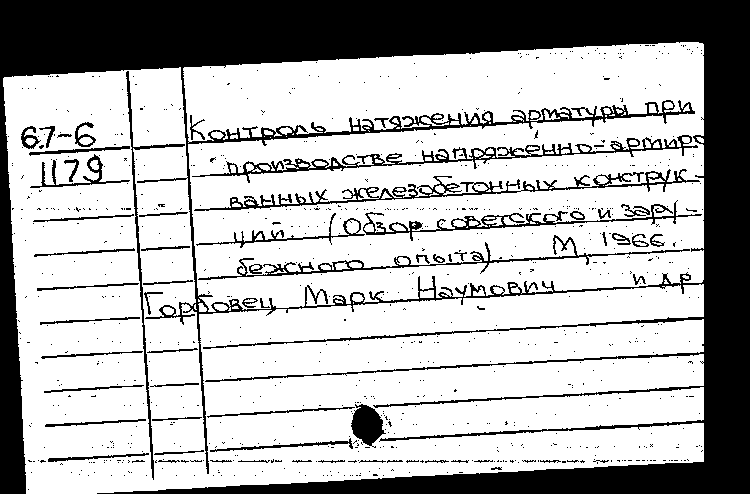 67-6
1179
Контроль натяжения арматуры при
производстве напряженно-армиро
ванных железобетонных конструк-
ций. (Обзор советского и зару-
бежного опыта) М, 1966.
Горбовец, Марк Наумович и др